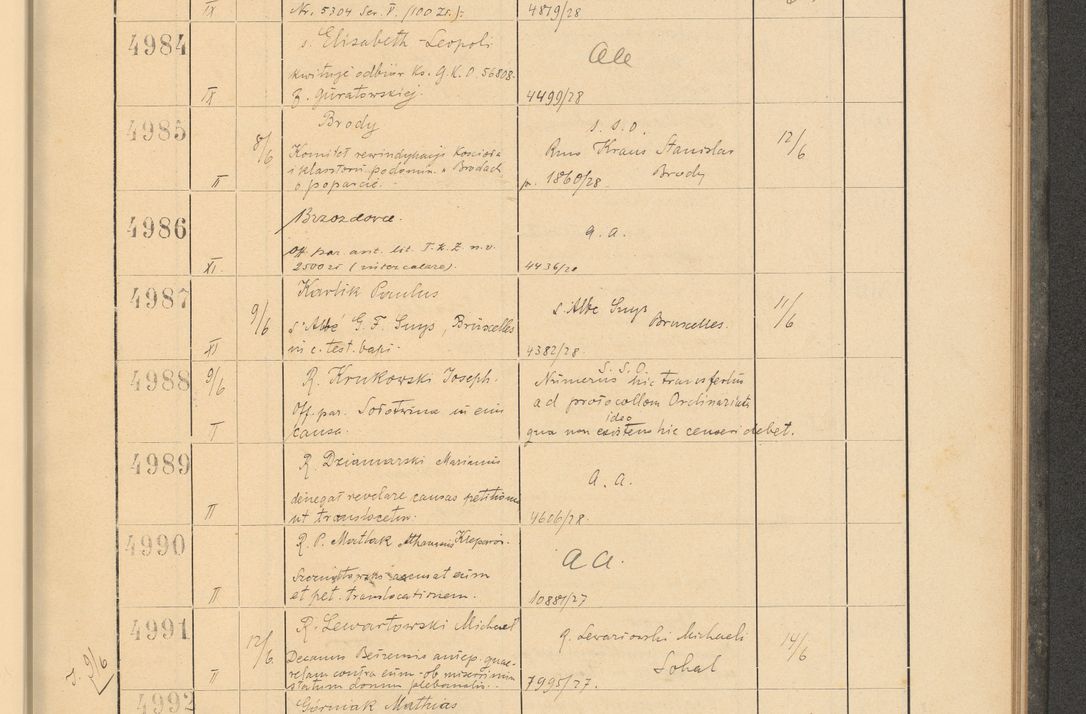 IX Nr. 5304 Ser. P. (100 Zł.): 4879/28
4984 s. Elisabeth - Leopoli aa
kwituje odbiór Ks. G.K.O. 56808.
IX 4499/28
4985 8/6 Brody s. s. o. 12/6
Komitet rewindykacji Kościoła Rmo Kraus Stanislao
i klasztoru podomin. w Brodach Brody
II o poparcie. p. 1860/28.
4986 Brzozdowce. a. a.
Off. par. ant. lit. T.K.Z. n.v.
XI. 2500 zł (intercalare). 4436/28
4987 9/6 Karlik Paulus 11/6
s. Abbé G. F. Suys, Bruxelles s. Abbe Suys Bruxelles.
XI m c. test. bapt. 4382/28.
4988 9/6 R. Krukowski Joseph. S. S. O.
Numerus hic transfertur
Off. par. Sołotwina in eius ad protocollom Ordinariatus
ideo
I causa. qua non existens hic censeri debet.
4989 R. Dziamarski Marianus a. a.
denegat revelare causas petitionis
II ut translocetur. 4606/28.
4990 R. P. Matlak Athanasius Kleparów. aa.
accusat eum
II et pet. translocationem. 10881/27
4991 12/6 R. Lewartowski Michael R. Lewartowski Michaeli 14/6
Decanus Belzensis antecp. quae- Sokal
relam contra eum ob miserrimum
s. 9/6 II statum domus plebanalis. 7995/27.
4992 Górniak Mathias